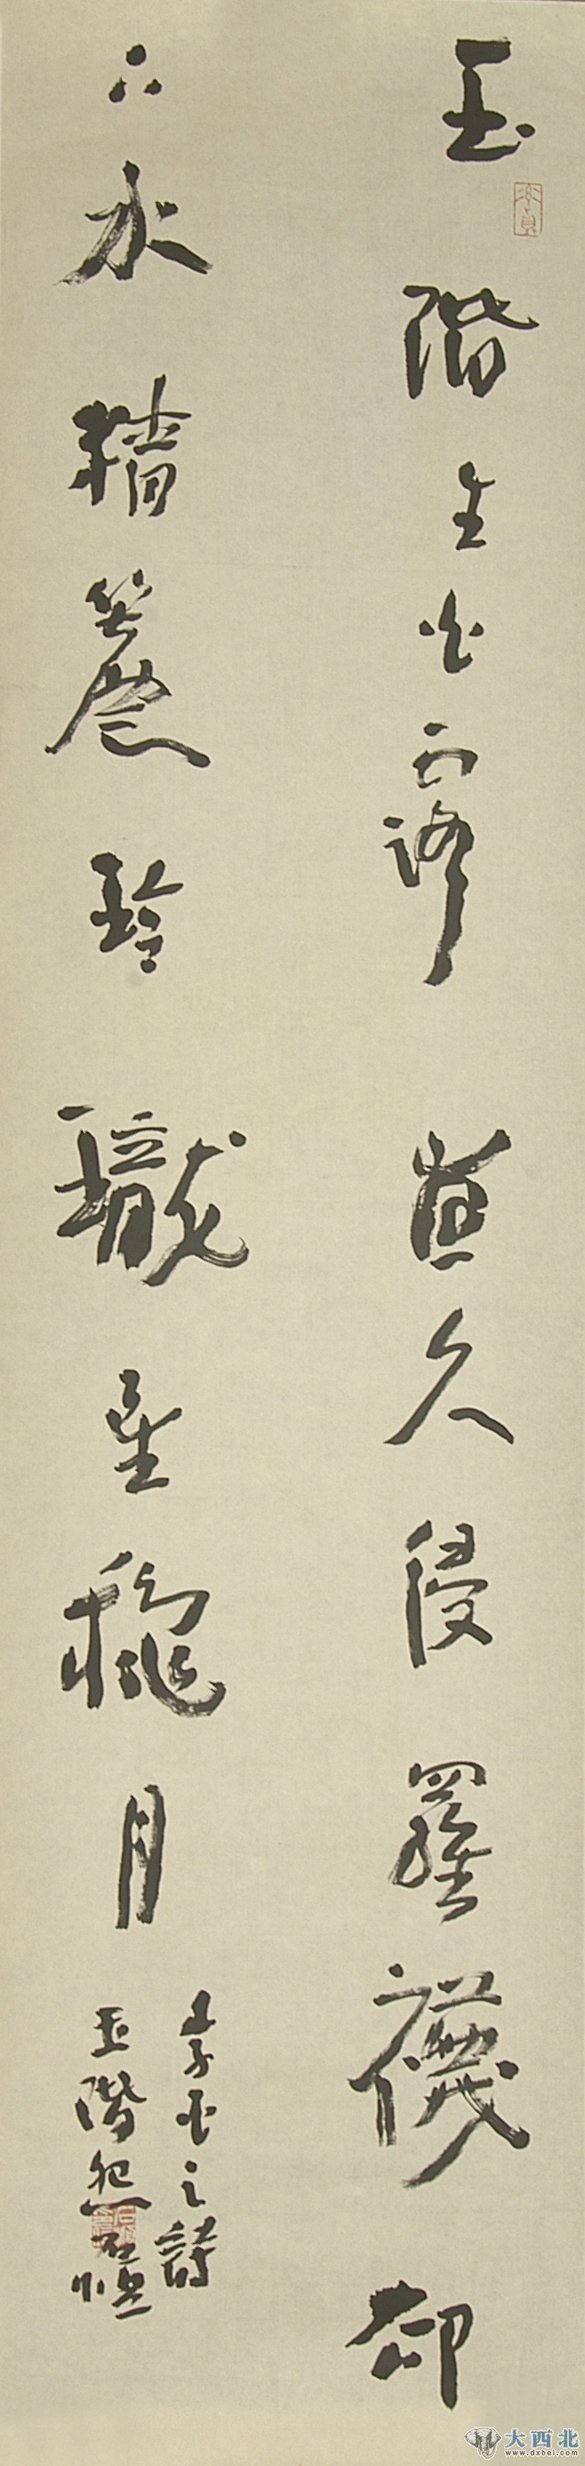 玉階生白露夜久侵羅襪却
下水精簾玲瓏望秋月
李白之詩
玉階怨
大西北
www.dxbei.com